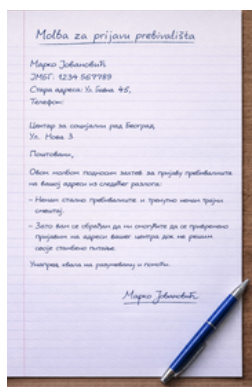 Molba za prijavu prebivališta
Марко Јовановић
ЈМБГ: 1234 567789
Стара адреса: Ул. Бивна 45,
Телефон:
Центар за социјални рад Београд
Ул. Нова 3
Поштовани,
Овом молбом подносим захтев за пријаву пребивалишта
на вашој адреси из следећег разлога:
- Немам стално пребивалиште и тренутно немам трајни
смештај.
- Зато вам се обраћам да ми омогућите да се привремено
пријавим на адреси вашег центра док не решим
своје стамбено питање.
Унапред хвала на разумевању и помоћи.
Марко Јовановић